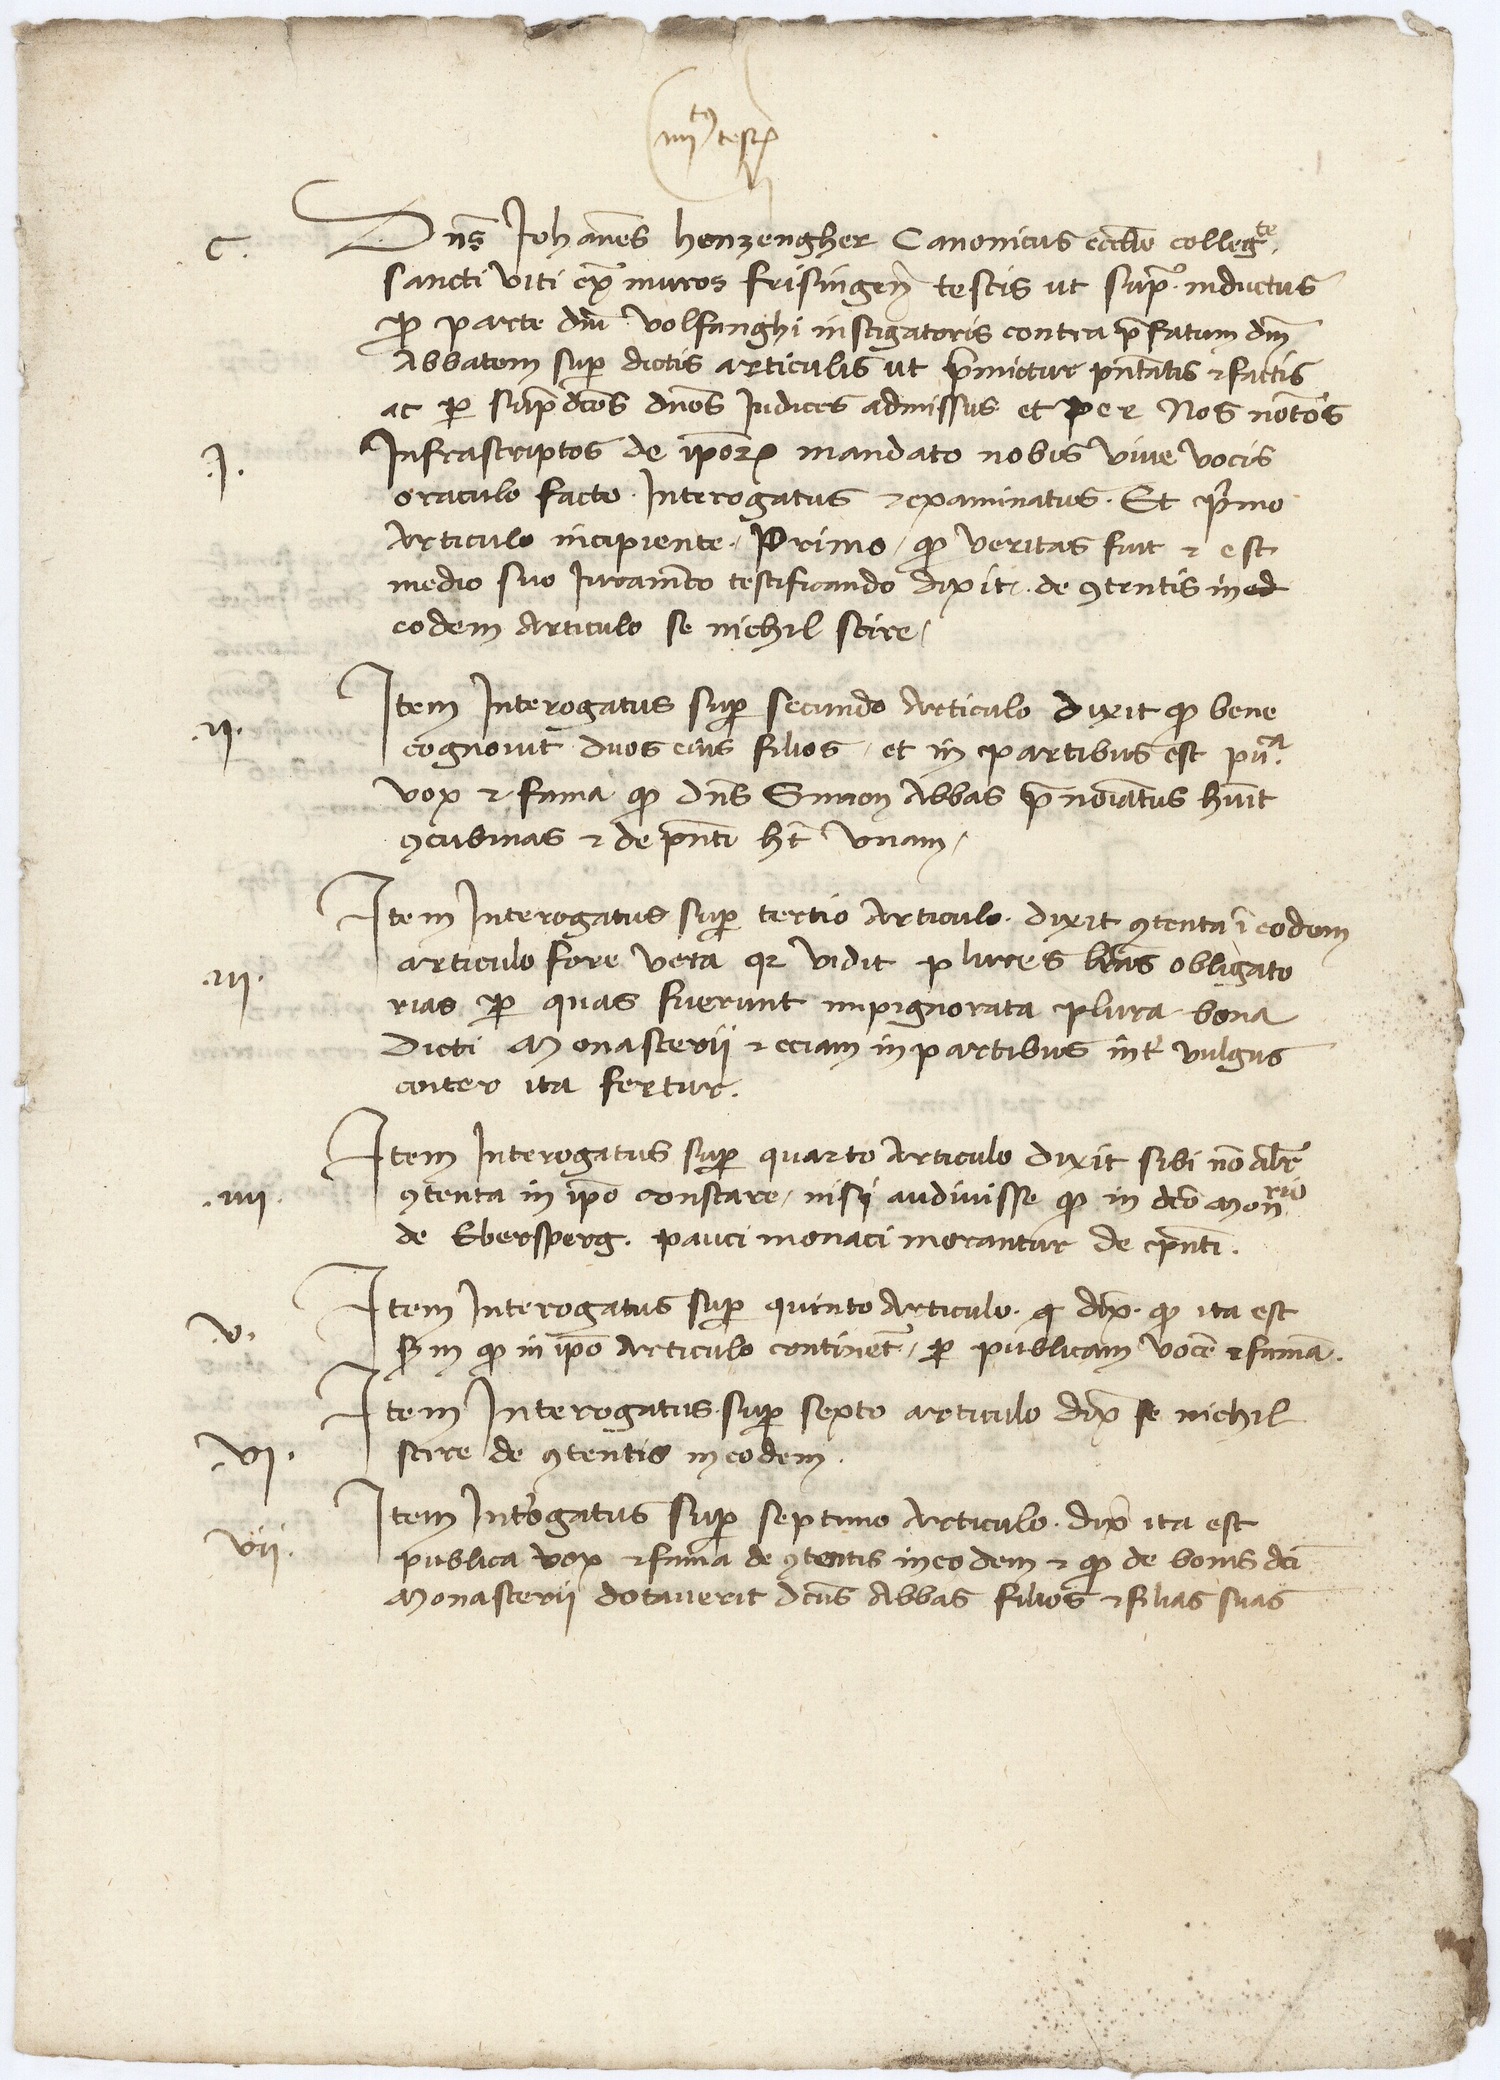 iiii tus testis
C.
Dns Johanes henzengher Canonicus eccl̄ie collegte.
sancti viti exͣ muros frisingen̄ testis ut supͣ inductus
ꝓ parte dn̄i volfanghi instigatoris contra p̄fatum dn̄m
Abbatem sup̱ dictis articulis ut p̄mictitur pn̄tatis ⁊ factis
ac ꝑ sup̄dc̄os dn̄os Judices admissus et per Nos not̄os
J.
Infrascriptos de ip̄oꝝ mandato nobis vive vocis
oraculo facto. Interogatus ⁊ examinatus. Et p̄imo
Articulo incipiente. Primo, ꝙ veritas fuit ⁊ est
medio suo Juram̄to testificando dixit. de ꝯtentis in
eodem Articulo se nichil scire,
ii.
Item Interogatus suꝑ secundo Articulo dixit ꝙ bene
cognovit duos eius filios, et in partibus est pu.ca
vox ⁊ fama ꝙ dn̄s Simon Abbas p̄noīatus hūit
ꝯcubinas ⁊ de pn̄ti h̄t unam,
Item Interogatus suꝑ tertio Articulo. dixit ꝯtenta ī eodem
iii.
articulo fore vera qꝛ vidit plures lr̄as obligato
rias ꝑ quas fuerunt impignorata plura bona
Dicti Monasterii ⁊ eciam in partibus int̄ vulgus
coīter ita fertur.
Item Interogatus suꝑ quarto Articulo dixit sibi nō alr̄
.iiii.
ꝯtenta in ip̄o constare, nisi audivisse ꝙ in dc̄o Monrio
de Ebersperg. pauci monaci morantur de pn̄ti.
Item Interogatus suꝑ quinto Articulo. dix̄. ꝙ ita est
.v.
s̄m ꝙ in ip̄o Articulo continet̄, ꝑ publicam vocē ⁊ famā.
Item Interogatus suꝑ sexto articulo dix̄ se nichil
.vi.
scire de ꝯtentis in eodem.
Item Int̄rogatus suꝑ septimo Articulo. dix̄ ita est
vii.
publica vox ⁊ fama de ꝯtentis in eodem ⁊ ꝙ de bonis dc̄i
Monasterii dotaverit dc̄us Abbas filios ⁊ filias suas